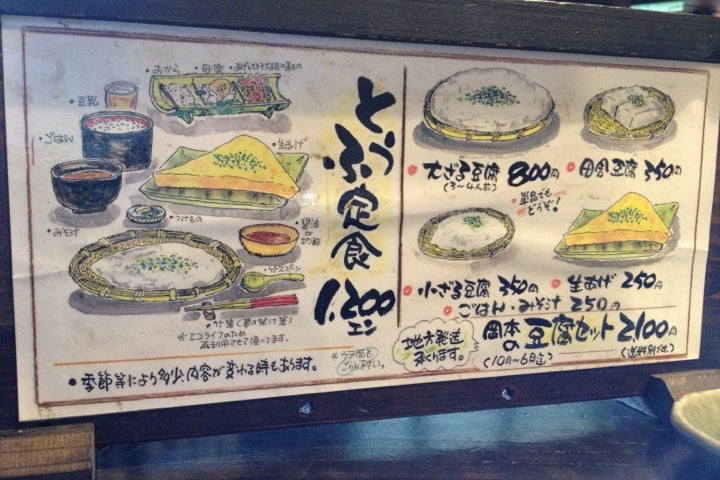 とうふ定食
1,200エン
・おから
・豆腐
・生あげ
・つけもの
※エコライフのため
再利用させて頂いてます。
・季節等により多少、内容が変わる時もあります。
※ウラ面も
ご覧下さい。
・大ざる豆腐 800円
(3〜4人前)
・田舎豆腐 350円
・単品でも
どうぞ!
・小ざる豆腐 350円
・生あげ 250円
・ごはん・みそ汁 250円
地方発送
承ります。
岡本の豆腐セット 2100円
(10月〜6月迄)
(送料別です。)